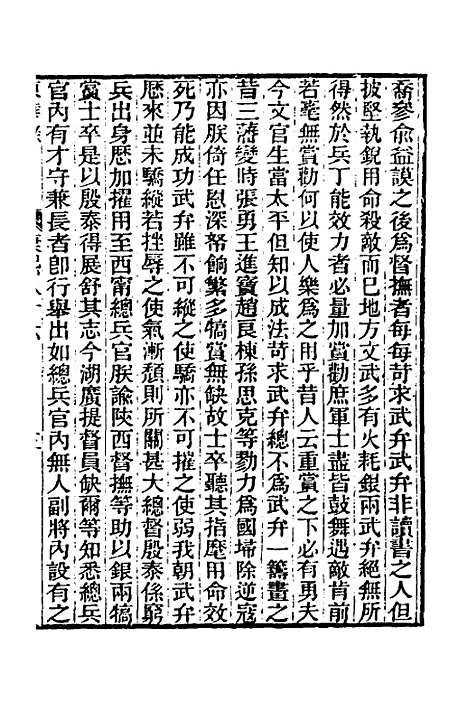 裔參俞益謨之後為督撫者每每苛求武弁武弁非讀書之人但
披堅執銳用命殺敵而已地方文武多有火耗銀兩武弁絕無所
得然於兵丁能效力者必量加賞勸庶軍士盡皆鼓舞遇敵肯前
若毫無賞勸何以使人樂為之用乎昔人云重賞之下必有勇夫
今文官生當太平但知以成法苛求武弁總不為武弁一籌畫之
昔三藩變時張勇王進寶趙良棟孫思克等勠力為國埽除逆寇
亦因朕倚任恩深帑餉繁多犒賞無缺故士卒聽其指麾用命效
死乃能成功武弁雖不可縱之使驕亦不可摧之使弱我朝武弁
歷來並未驕縱若挫辱之使氣漸頹則所關甚大總督殷泰係窮
兵出身歷加擢用至西甯總兵官朕諭陝西督撫等助以銀兩犒
賞士卒是以殷泰得展舒其志今湖廣提督員缺爾等知悉總兵
官內有才守兼長者卽行舉出如總兵官內無人副將內設有之